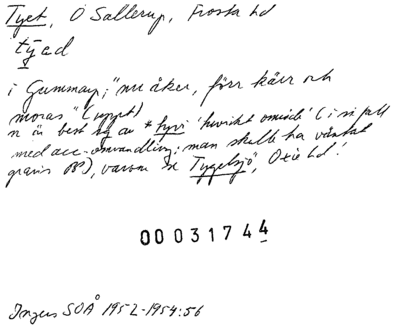 Tyet, Ö Sallerup, Frosta hd
tyed
i Gummarp; "nu åker, förr kärr och
moras" (uppg.)
n är best sg av * tyvi 'buskrikt område' (i så fall
med acc.-omvandling; man skulle ha väntat
gravis ), varom se Tygelsjö, Oxie hd!
00031744
Ingers SOÅ 1952-1954:56